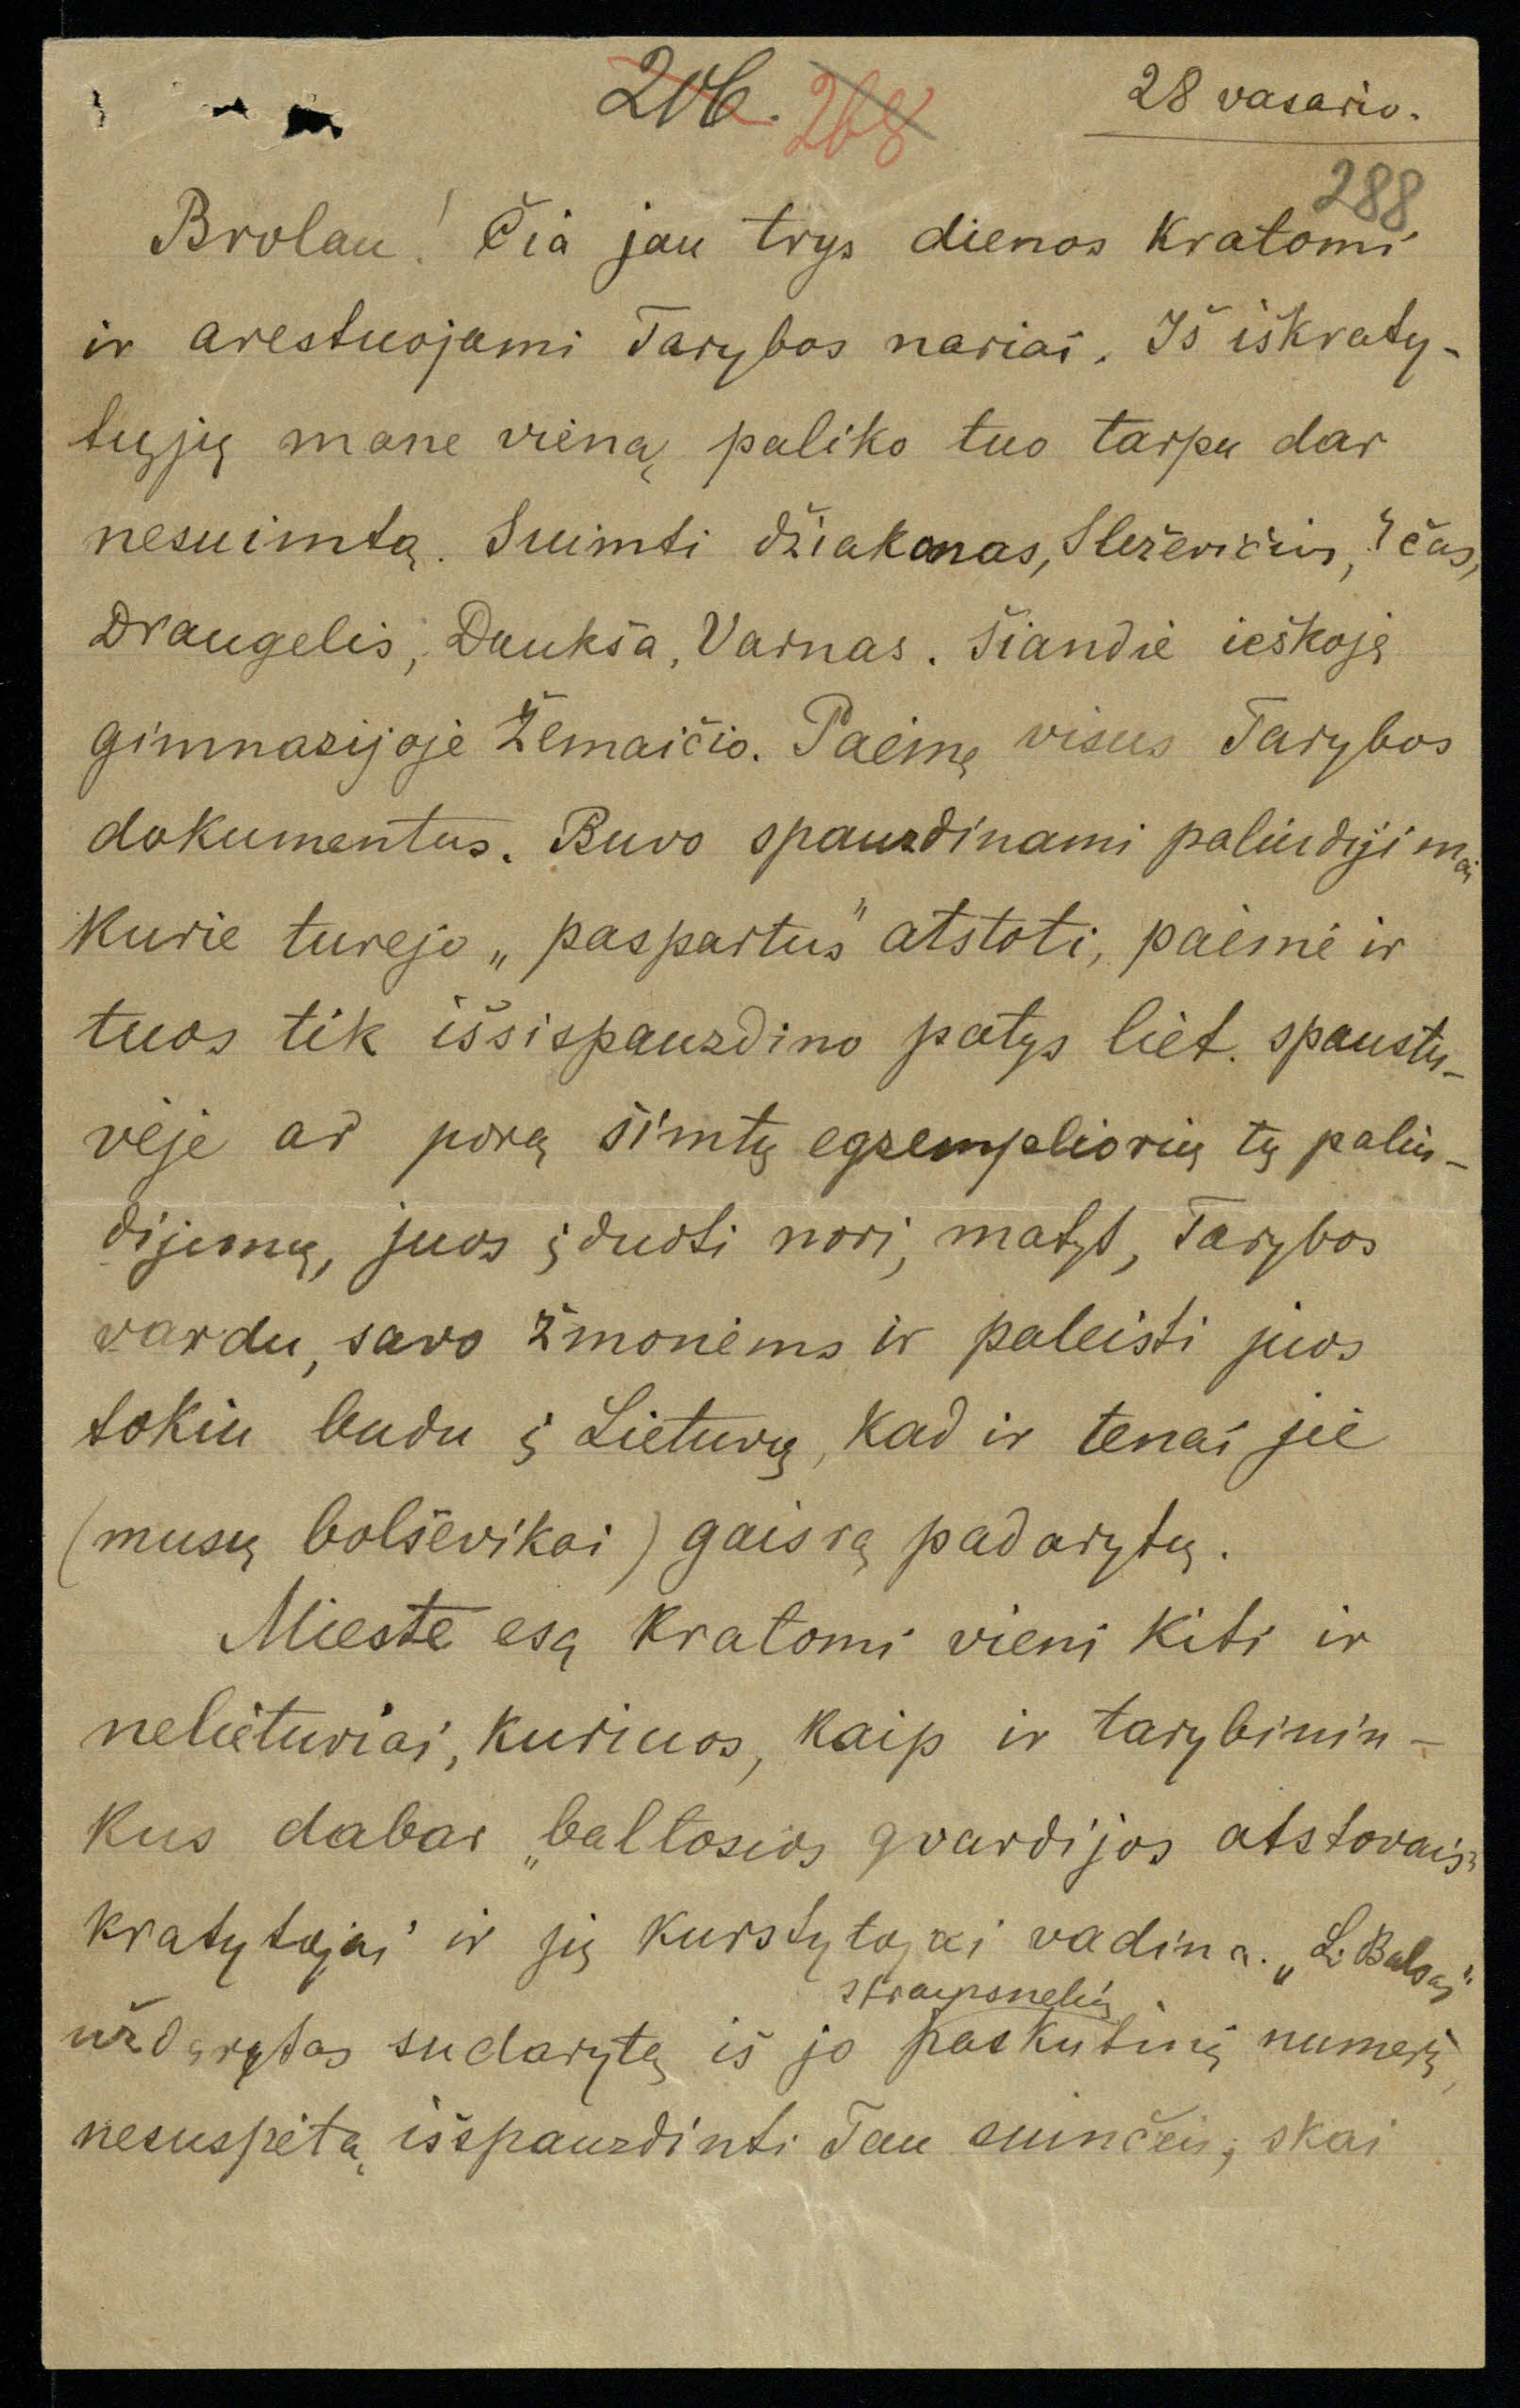 206. 268
28 vasario.
288
Brolau! Čia jau trys dienos kratomi
ir arestuojami Tarybos nariai. Iš iškraty-
tųjų mane vieną paliko tuo tarpu dar
nesuimtą. Suimti džiakonas, Sleževičius,
Draugelis, Daukša, Varnas. Šiandie ieškoję
gimnazijoje Žemaičio. Paėmę visus Tarybos
dokumentus. Buvo spauzdinami paliudijimai
kurie turejo „paspartus" atstoti, paėmė ir
tuos tik išsispauzdino patys liet. spaustu-
vėje ar porą šimtų egzempliorių tų paliu-
dijimų, juos įduoti nori, matyt, Tarybos
vardu, savo žmonėms ir paleisti juos
tokiu budu į Lietuvą, kad ir tenai jie
(musų bolševikai) gaisrą padarytų.
Mieste esą kratomi vieni kiti ir
nelietuviai, kuriuos, kaip ir tarybinin-
kus dabar „baltosios gvardijos atstovais"
kratytojai ir jų kurstytojai vadina. „L. Balsas"
straipsnelių
uždarytas sudarytą iš jo paskutinį numerį,
nesuspėtą išspauzdinti Tau siunčiu, skai